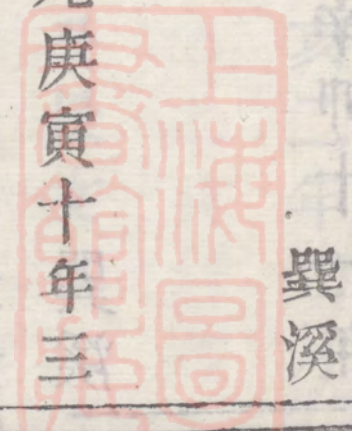 巽溪
庚寅十年三
上海圖
書館藏